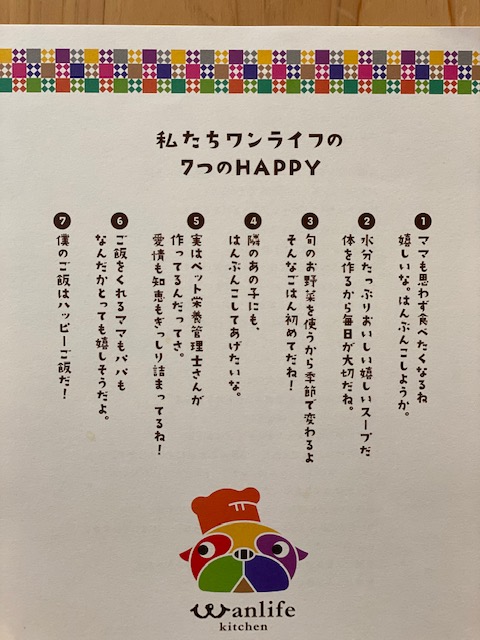 私たちワンライフの
7つのHAPPY
1
ママも思わず食べたくなるね
嬉しいな。はんぶんこしようか。
2
水分たっぷりおいしい嬉しいスープだ
体を作るから毎日が大切だね。
3
旬のお野菜を使うから季節で変わるよ
そんなごはん初めてだね！
4
隣のあの子にも、
はんぶんこしてあげたいな。
5
実はペット栄養管理士さんが
作ってるんだってさ。
愛情も知恵もぎっしり詰まってるね！
6
ご飯をくれるママもパパも
なんだかとっても嬉しそうだよ。
7
僕のご飯はハッピーご飯だ！
wanlife
kitchen